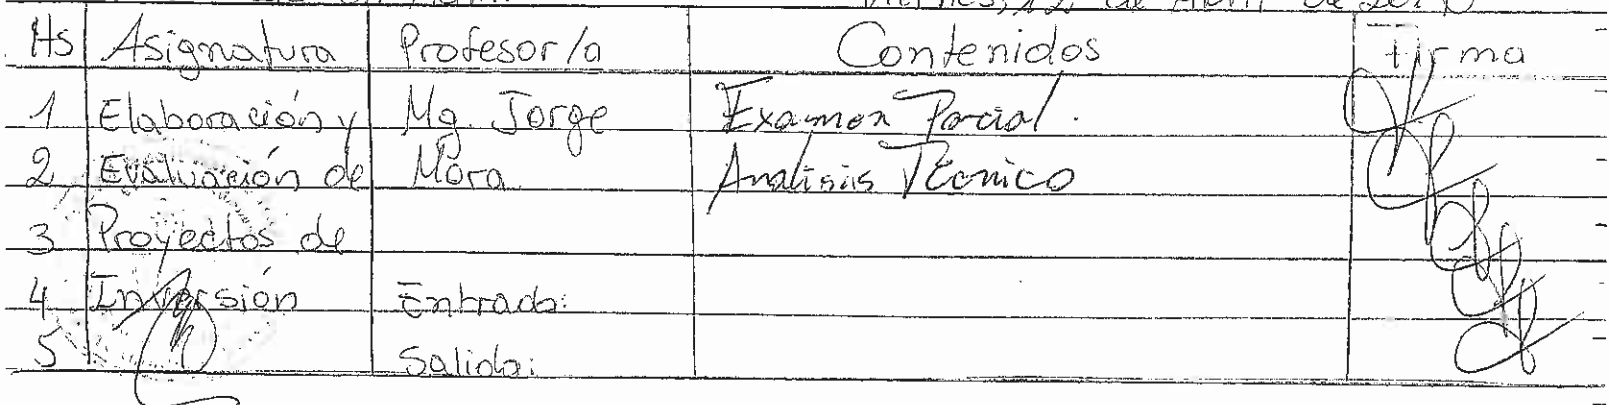 Viernes, 12 de Abril de
Hs Asignatura Profesor/a Contenidos Firma
1 Elaboración y Mg. Jorge Examen Parcial.
2 Evaluación de Mora Analisis Técnico
3 Proyectos de
4 Inversión Entrada:
5 Salida: